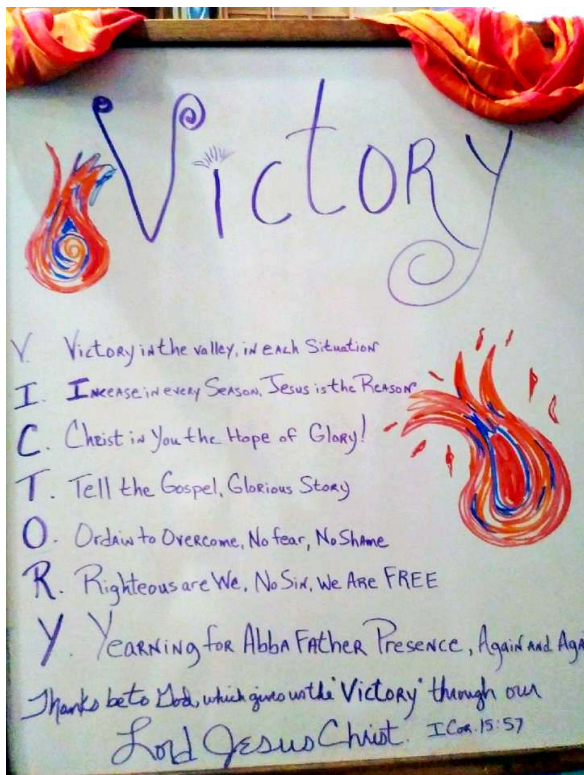 Victory
V. Victory in the valley, in Each Situation
I. Increase in every Season, Jesus is the Reason
C. Christ in You the Hope of Glory!
T. Tell the Gospel, Glorious Story
O. Ordain to Overcome, No fear, No Shame
R. Righteous are We, No Sin, We Are FREE
Y. Yearning for Abba Father Presence, Again and Aga
Thanks be to God, which gives us the "Victory" through our
Lord Jesus Christ. I Cor. 15:57